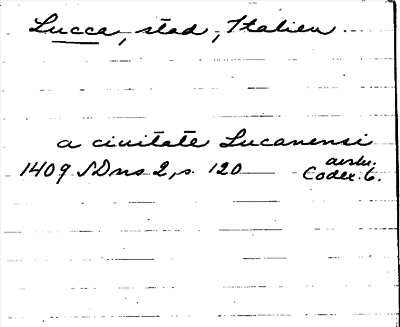 Lucca, stad, Italien
a civitate Lucanensi
1409 SDns 2, s. 120 avskr. Codex 6.